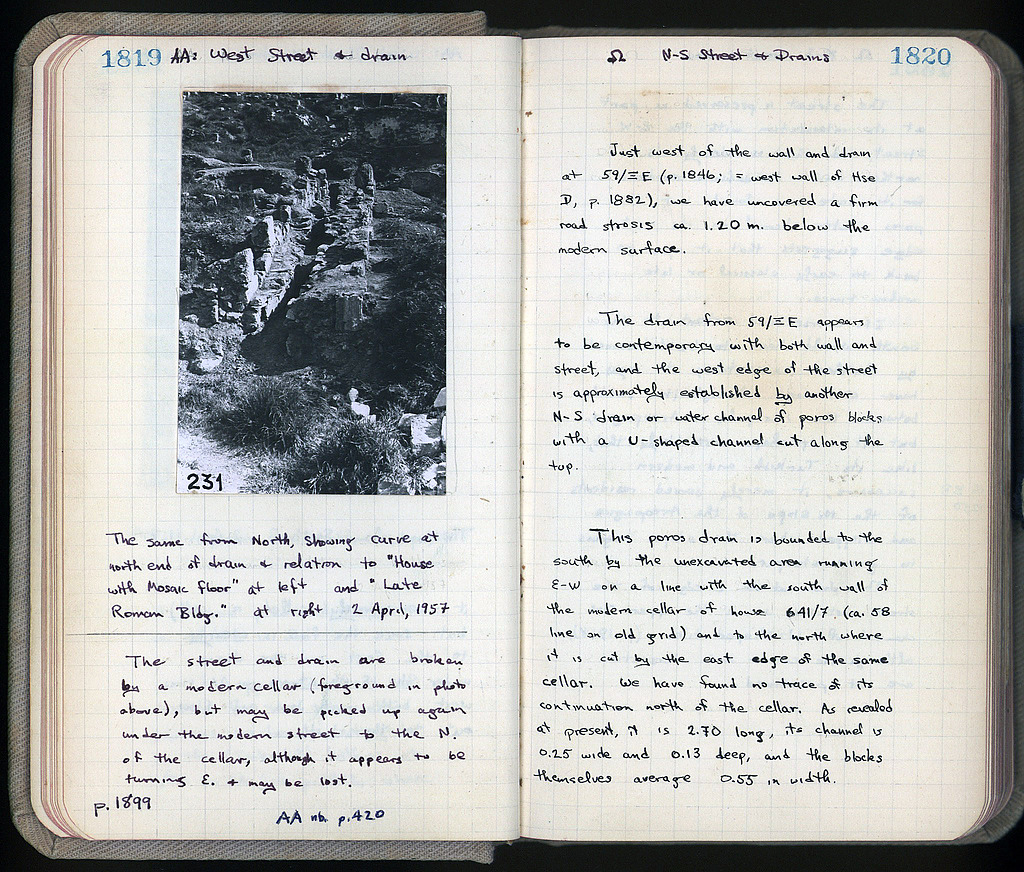 1819 AA: West Street & drain
231
The same from North, showing curve at
north end of drain & relation to "House
with Mosaic Floor" at left and "Late
Roman Bldg." at right 2 April, 1957
The street and drain are broken
by a modern cellar (foreground in photo
above), but may be picked up again
under the modern street to the N.
of the cellar, although it appears to be
turning E. & may be lost.
p. 1899
AA nb. p. 420
Ω N-S Street & Drains 1820
Just west of the wall and drain
at 59/ΞE (p. 1846; = west wall of Hse
D, p. 1882), we have uncovered a firm
road strosis ca. 1.20 m. below the
modern surface.
The drain from 59/ΞE appears
to be contemporary with both wall and
street, and the west edge of the street
is approximately established by another
N-S drain or water channel of poros blocks
with a U-shaped channel cut along the
top.
This poros drain is bounded to the
south by the unexcavated area running
E-W on a line with the south wall of
the modern cellar of house 641/7 (ca. 58
line on old grid) and to the north where
it is cut by the east edge of the same
cellar. We have found no trace of its
continuation north of the cellar. As revealed
at present, it is 2.70 long, its channel is
0.25 wide and 0.13 deep, and the blocks
themselves average 0.55 in width.